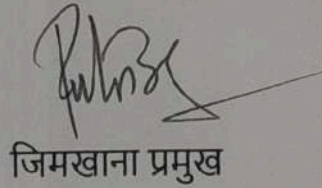 जिमखाना प्रमुख